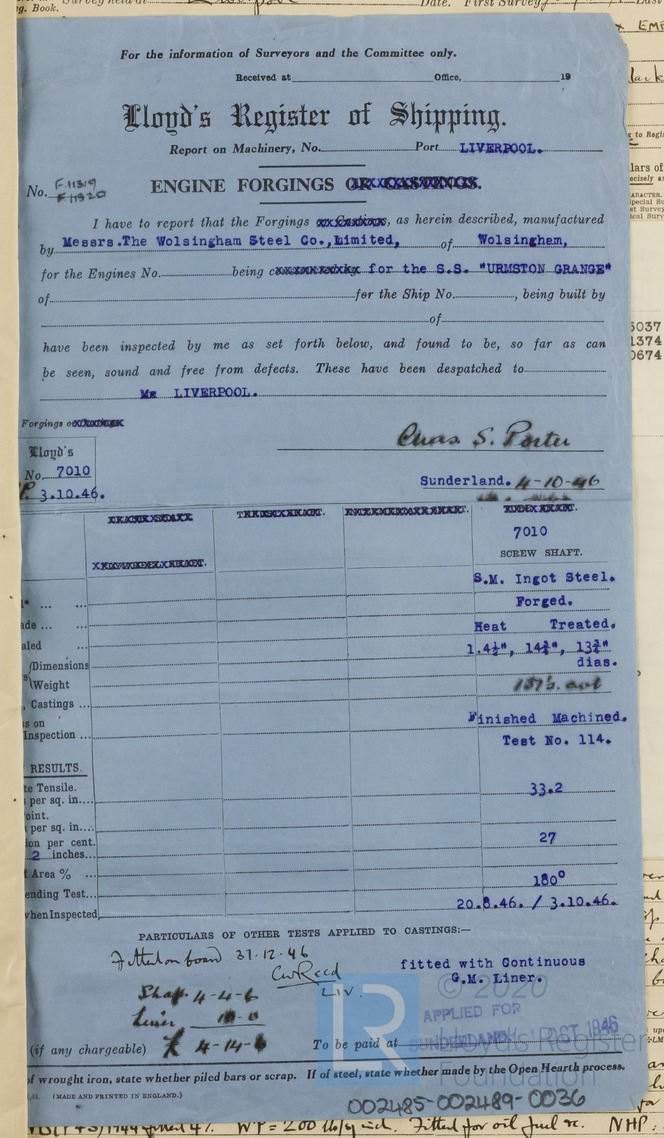 g. Book.
Date. First Survey
For the information of Surveyors and the Committee only.
Received at Office, 19
Lloyd's Register of Shipping.
Report on Machinery, No. Port LIVERPOOL.
No. F.11319
F.11320
ENGINE FORGINGS OR CASTINGS.
I have to report that the Forgings or Castings, as herein described, manufactured
by Messrs.The Wolsingham Steel Co.,Limited, of Wolsingham,
for the Engines No. being for the S.S. "URMSTON GRANGE"
of for the Ship No. , being built by
of
have been inspected by me as set forth below, and found to be, so far as can
be seen, sound and free from defects. These have been despatched to
LIVERPOOL.
Forgings
Chas S. Porter
Lloyd's
No. 7010
3.10.46.
Sunderland. 4-10-46
7010
SCREW SHAFT.
S.M. Ingot Steel.
Forged.
Heat Treated.
1.4½", 14¾", 13¾"
dias.
Dimensions
Weight
Castings ...
s on
Inspection ...
Finished Machined.
Test No. 114.
RESULTS.
te Tensile.
per sq. in.... 33.2
oint.
per sq. in....
ion per cent.
2 inches... 27
Area % ...
ending Test... 180°
when Inspected 20.8.46. / 3.10.46.
PARTICULARS OF OTHER TESTS APPLIED TO CASTINGS:—
Fitted on board 31.12.46
CW Reed
LIV.
fitted with Continuous
G.M. Liner.
Shaft 4-4-6
Liner 10-0
(if any chargeable) £ 4-14-6 To be paid at
APPLIED FOR
SUNDERLAND OCT 1946
© 2020
Lloyd's Register
Foundation
of wrought iron, state whether piled bars or scrap. If of steel, state whether made by the Open Hearth process.
(MADE AND PRINTED IN ENGLAND.)
002485-002489-0036
WP = 200 lb/sq. in. Fitted for oil fuel NHP: